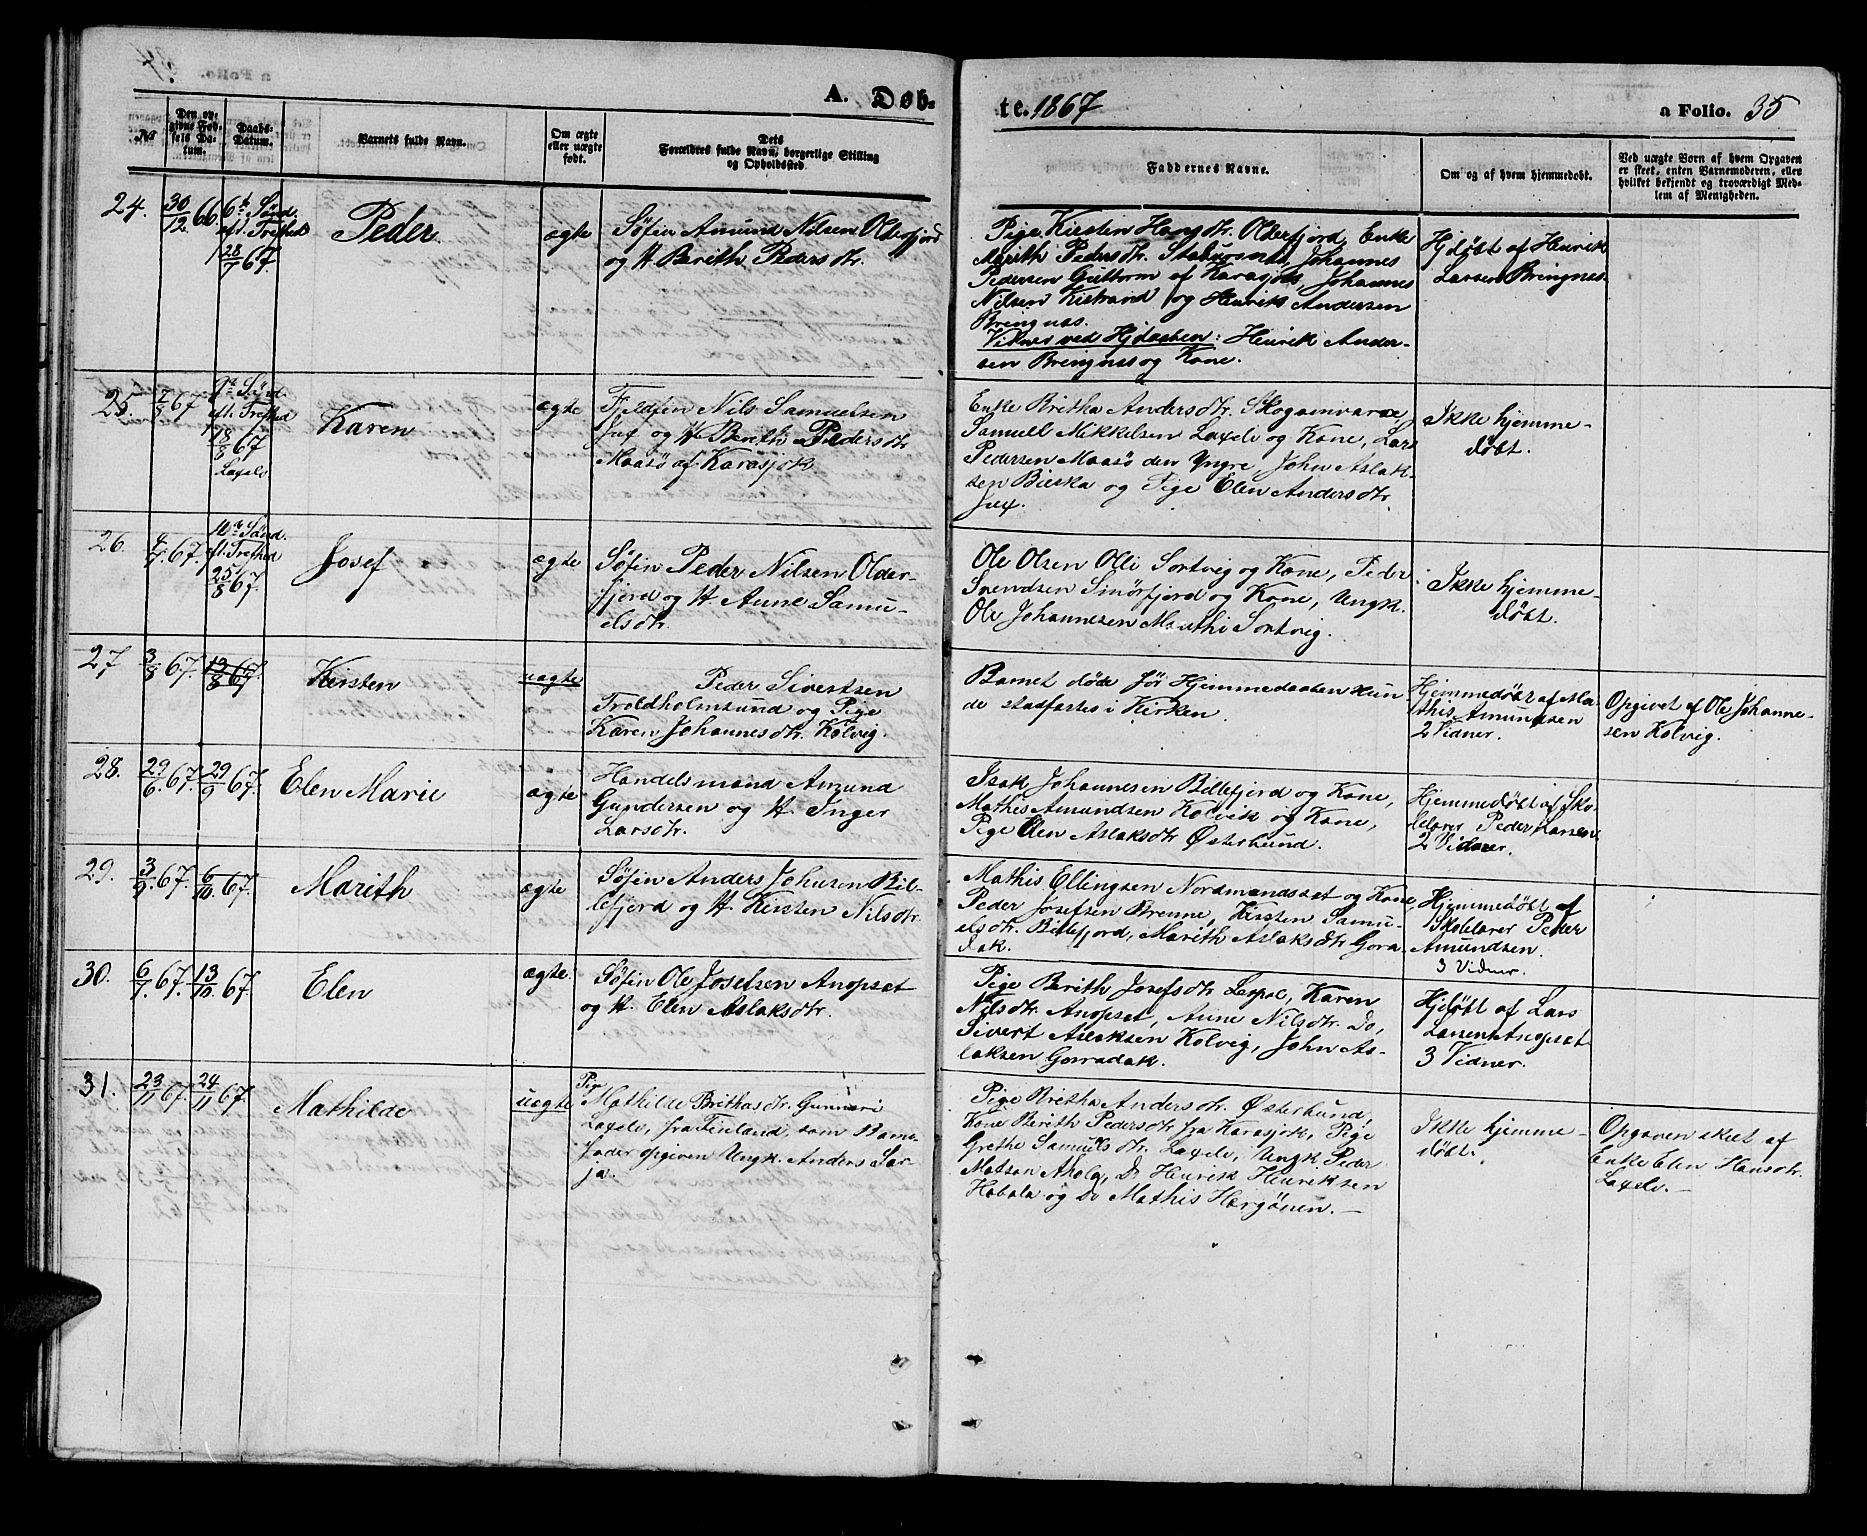 A. Døb-
te. 1867
a Folio. 35
No
Den op-
givne Fød-
sels Da-
tum.
Daabs-
Datum.
Barnets fulde Navn.
Om ægte
eller uægte
født.
Dets
Forældres fulde Navn, borgerlige Stilling
og Opholdssted.
Faddernes Navne.
Om og af hvem hjemmedøbt.
Ved uægte Børn af hvem Opgaven
er skeet, enten Barnemoderen, eller
hvilket bekjendt og troværdigt Med-
lem af Menigheden.
24.
30/12 66
6te Sønd.
eft. Trefhed
28/7 67.
Peder.
ægte
Søfin Amund Nilsen Olderfjord
og H. Berith Pedersdtr.
Pige Kirstin Hansdtr. Olderfjord, Enke
Marith Pedersdtr. Stabursnes, Johannes
Pedersen Guttorm af Karasjok, Johannes
Nilsen Kistrand og Henrik Andersen
Bringnæs.
Vidner ved Hjdaaben: Henrik Ander-
sen Bringnæs og Kone.
Hjdøbt af Henrik
Larsen Bringnes.
25.
67
9de Sønd.
eft. Trefhed
18/8 67
Laxelv
Karen
ægte
Fjeldfin Nils Samuelsen
Jux og H. Berith Pedersdtr
Maasø af Karasjok
Enke Britha Andersdtr. Skoganvarre,
Samuell Mikkelsen Laxelv og Kone, Lars
Pedersen Maasø den Yngre, John Aslak-
sen Bieska og Pige Elen Andersdtr.
Jux.
Ikke hjemme-
døbt.
26.
67.
10de Sønd.
eft. Trefhed
25/8 67.
Josef
ægte
Søfin Peder Nilsen Older-
fjord og H. Anne Samu-
elsdtr.
Ole Olsen Olli Sortvig og Kone, Peder
Svendsen Smørfjord og Kone, Ungk.
Ole Johannesen Maathi Sortvig.
Ikke hjemme-
døbt.
27
3/8 67.
13/8 67.
Kirsten
uægte
Peder Sivertsen
Troldholmsund og Pige
Karen Johannesdtr. Kolvig.
Barnet døde før Hjemmedaaben kun
de stadfæstes i Kirken.
Hjemmedøbt af Ma-
this Amundsen
2 Vidner.
Opgivet af Ole Johanne-
sen Kolvig.
28.
29/6 67.
29/9 67.
Elen Marie
ægte
Handelsmand Amund
Gundersen og H. Inger
Larsdtr.
Isak Johannesen Billefjord og Kone,
Mathis Amundsen Kolvik og Kone,
Pige Elen Aslaksdtr Østerhund.
Hjemmedøbt af Sko-
lelærer Peder Larsen
2 Vidner.
29.
3/9 67.
6/10 67.
Marith
ægte
Søfin Anders Johnsen Bil-
lefjord og H. Kirsten Nilsdtr.
Mathis Ellingsen Nordmandsæt og Kone,
Peder Josefsen Brenne, Kirsten Samu-
elsdtr. Billefjord, Marith Aslaksdtr Gorra-
dak.
Hjemmedøbt af
Skolelærer Peder
Amundsen.
3 Vidner.
30.
6/7 67.
13/10 67.
Elen
ægte.
Søfin Ole Josefsen Anopset
og H. Elen Aslaksdtr.
Pige Berith Josefsdtr. Karen
Nilsdtr. Anopset, Anne Nilsdtr. Do,
Sivert Aslaksen Kolvig, John As-
laksen Gorradak.
Hjdøbt af Lars
Larsen Anopset
3 Vidner.
31.
23/11 67.
24/11 67.
Mathilde
uægte
Pige
Mathilde Brithasdtr. Gunnari
Laxelv, fra Finland, som Barne-
fader opgiven Ungk. Anders Sar-
ja.
Pige Britha Andersdtr. Østerhund,
Kone Berith Pedersdtr fra Karasjok, Pige
Grethe Samuelsdtr. Laxelv, Ungk. Peder
Matson Ahola, Do Henrik Henriksen
Habala og Do Mathis Hærgönen.
Ikke hjemme-
døbt.
Opgaven skeet af
Enke Elen Hansdtr.
Laxelv.